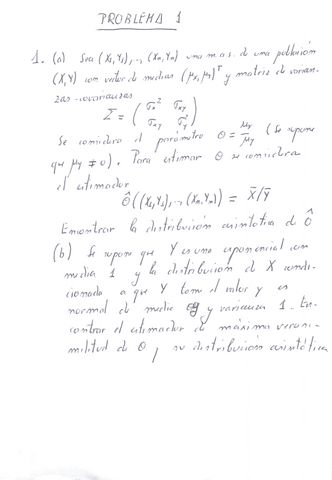 PROBLEMA 1
1. (a) Sea (X₁,Y₁),..,(Xn,Yn) una m.a.s. de una población
(X,Y) con vector de medias (μx,μy)ᵀ y matriz de varian
zas-covarianzas
Σ = (σx² σxy
σxy σy²)
Se considera el parámetro θ = μx/μy (Se supone
que μy ≠ 0). Para estimar θ se considera
el estimador
θ̂((X₁,Y₁),..,(Xn,Yn)) = X̄/Ȳ
Encontrar la distribución asintótica de θ̂
(b) Se supone que Y es una exponencial con
media 1 y la distribución de X condi-
cionada a que Y tome el valor y es
normal de media θy y varianza 1. En-
contrar el estimador de máxima verosi-
militud de θ y su distribución asintótica